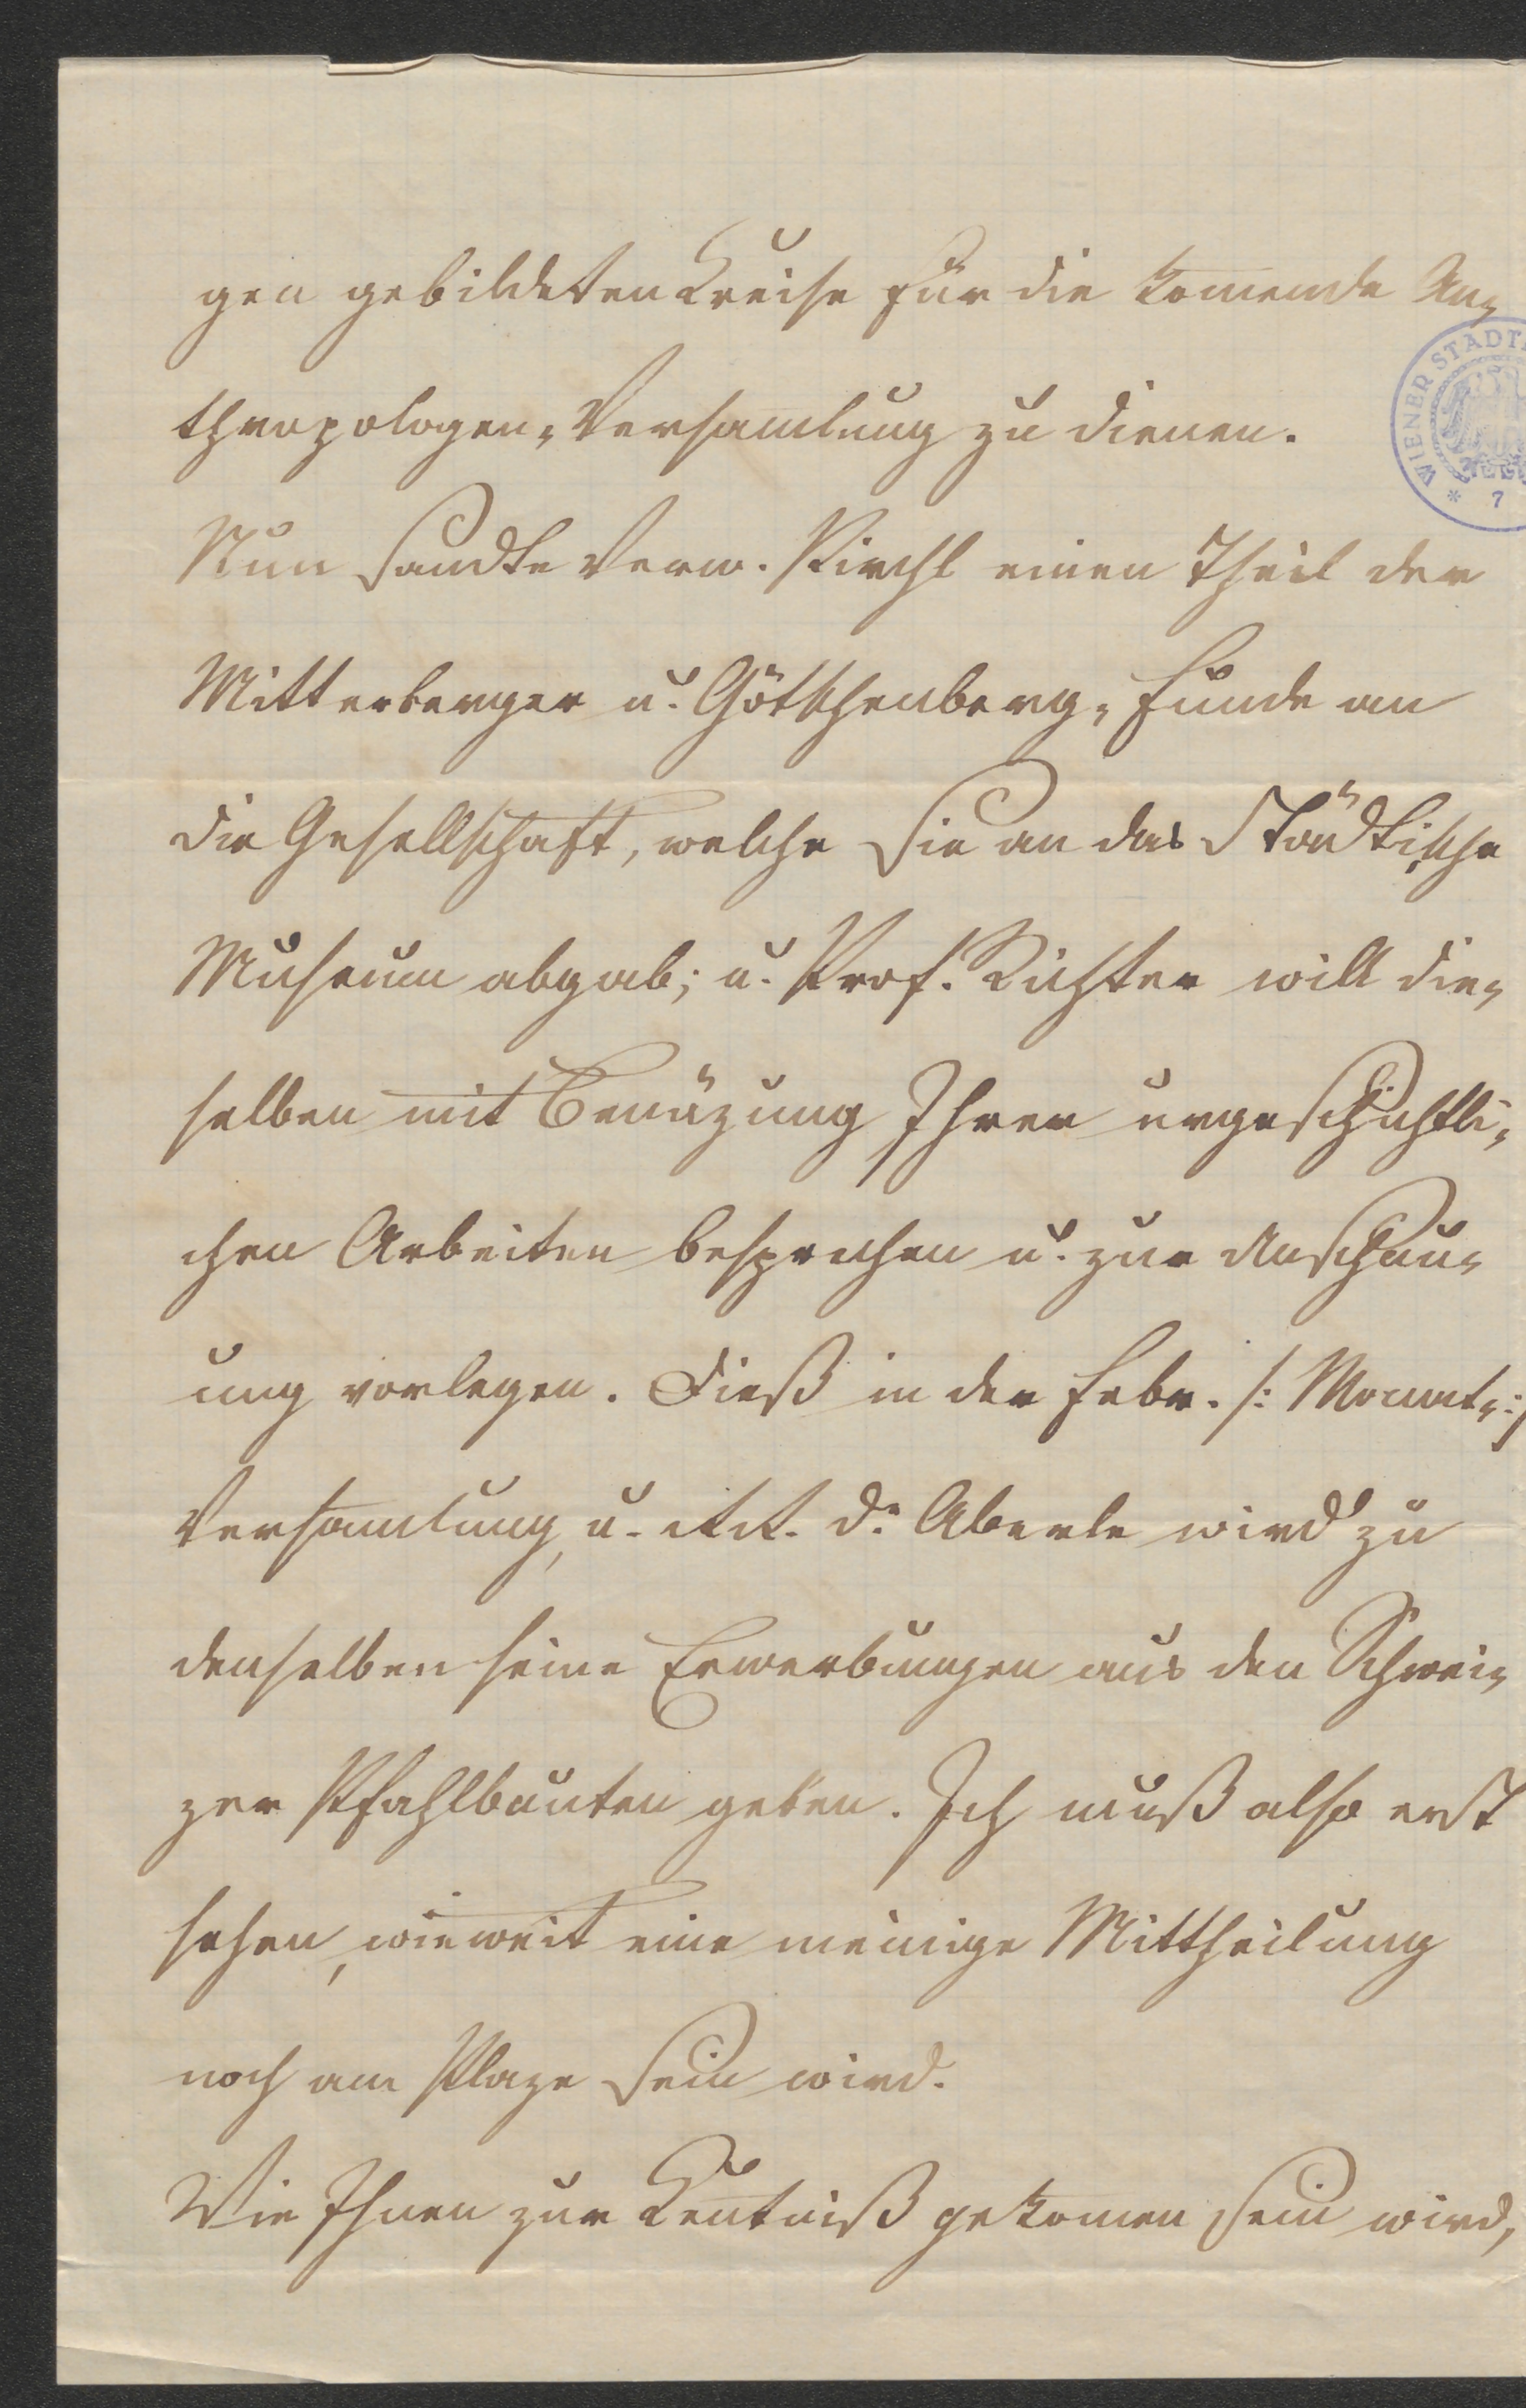 gen gebildeten Kreise für die komende An-
thropologen-Versamlung zu dienen.
Nun sandte Verw. Pirchl einen Theil der
Mitterberger u. Götschenberg-Funde an
die Gesellschaft, welche sie an das Städtische
Museum abgab; u. Prof. Richter will die-
selben mit Benüzung Ihrer urgeschichtli-
chen Arbeiten besprechen u. zur Anschau-
ung vorlegen. Dieß in der Febr. /: Monat-:/
Versamlung, u. Dr Aberle wird zu
denselben seine Erwerbungen aus den Schwei-
zer Pfahlbauten geben. Ich muß also erst
sehen, wieweit eine meinige Mittheilung
noch am Plaze sein wird.
Wie Ihnen zur Kentniß gekomen sein wird,
WIENER STADT
* 7